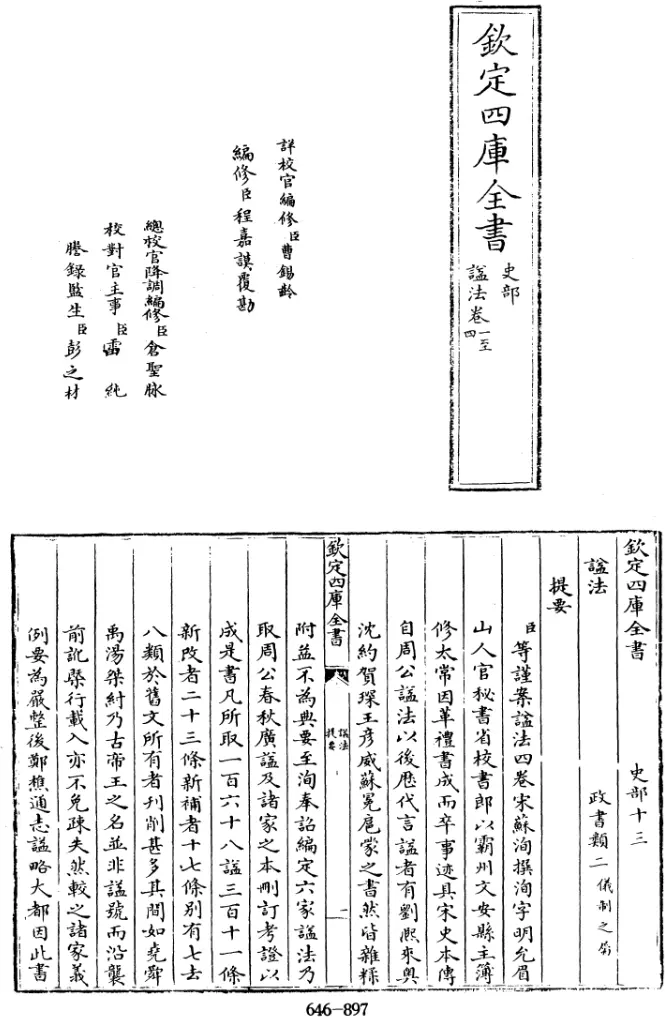 欽定四庫全書
史部
諡法卷一至四
詳校官編修臣曹錫齡
編修臣程嘉謨覆勘
總校官降調編修臣倉聖脉
校對官主事臣雷純
謄錄監生臣彭之材
欽定四庫全書 史部十三
諡法 政書類二儀制之屬
提要
臣等謹案諡法四卷宋蘇洵撰洵字明允眉
山人官秘書省校書郎以霸州文安縣主簿
修太常因革禮書成而卒事迹具宋史本傳
自周公諡法以後歷代言諡者有劉熙來奥
沈約賀琛王彦威蘇冕扈蒙之書然皆雜糅
欽定四庫全書
諡法
提要
一
附益不為典要至洵奉詔編定六家諡法乃
取周公春秋廣諡及諸家之本刪訂考證以
成是書凡所取一百六十八諡三百十一條
新改者二十三條新補者十七條別有七去
八類於舊文所有者刊削甚多其間如堯舜
禹湯桀紂乃古帝王之名並非諡號而沿襲
前訛槩行載入亦不免疎失然較之諸家義
例要為嚴整後鄭樵通志諡略大都因此書
646-897